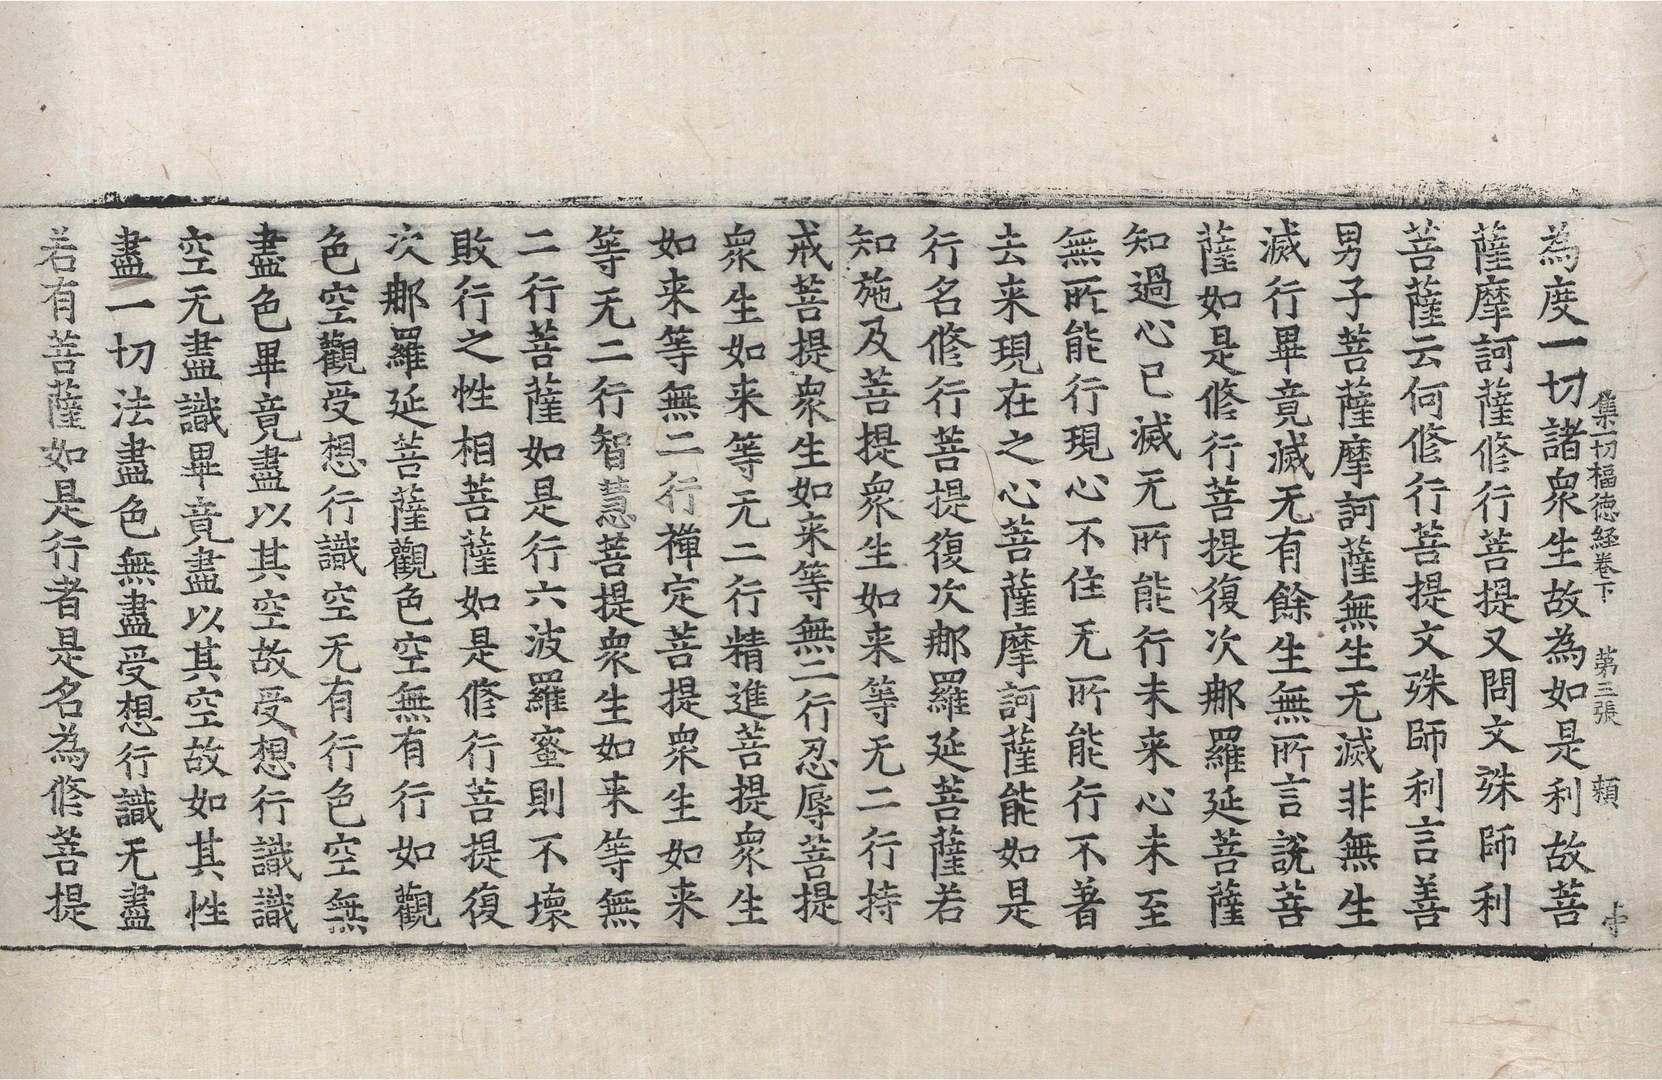 集一切福徳経卷下 第三張 頼
為度一切諸衆生故為如是利故菩
薩摩訶薩修行菩提又問文殊師利
菩薩云何修行菩提文殊師利言善
男子菩薩摩訶薩無生无滅非無生
滅行畢竟滅无有餘生無所言說菩
薩如是修行菩提復次那羅延菩薩
知過心已滅无所能行未来心未至
無所能行現心不住无所能行不著
去来現在之心菩薩摩訶薩能如是
行名修行菩提復次那羅延菩薩若
知施及菩提衆生如来等无二行持
戒菩提衆生如来等無二行忍辱菩提
衆生如来等无二行精進菩提衆生
如来等無二行禪定菩提衆生如来
等无二行智慧菩提衆生如来等無
二行菩薩如是行六波羅蜜則不壞
敗行之性相菩薩如是修行菩提復
次那羅延菩薩觀色空無有行如觀
色空觀受想行識空无有行色空無
盡色畢竟盡以其空故受想行識識
空无盡識畢竟盡以其空故如其性
盡一切法盡色無盡受想行識无盡
若有菩薩如是行者是名為修菩提